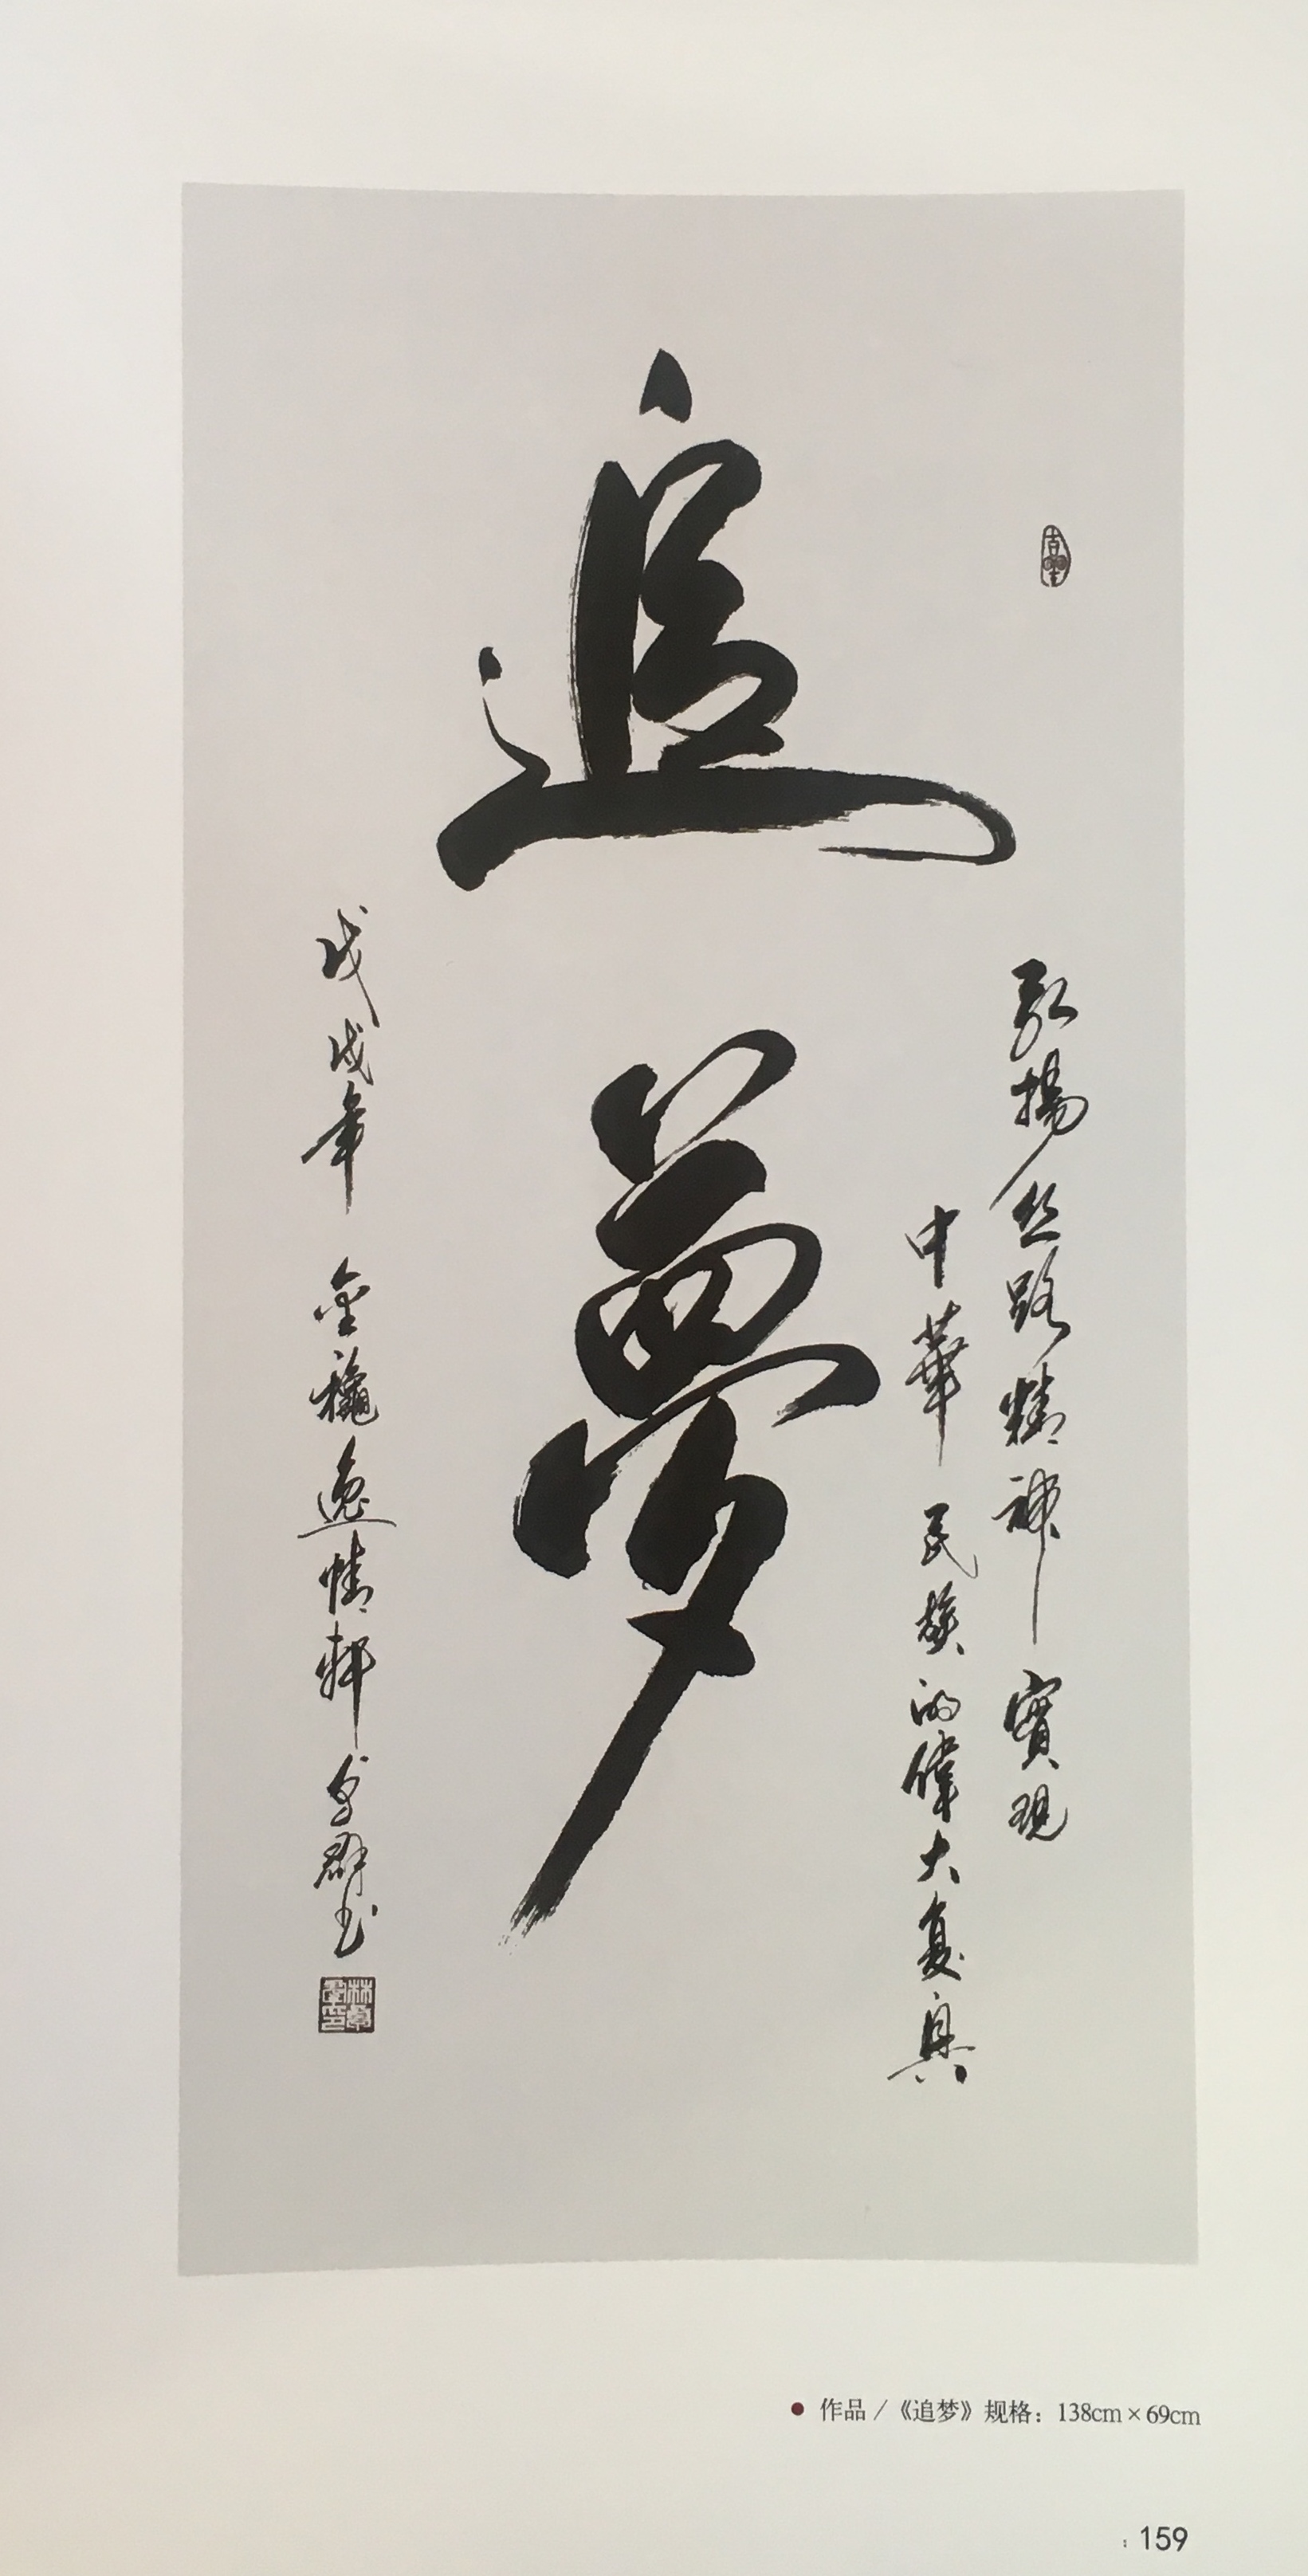 追夢
弘揚丝路精神實現
中華民族的偉大复興
戊戌年金龝逸情軒
群书
作品 /《追梦》规格：138cm×69cm
159